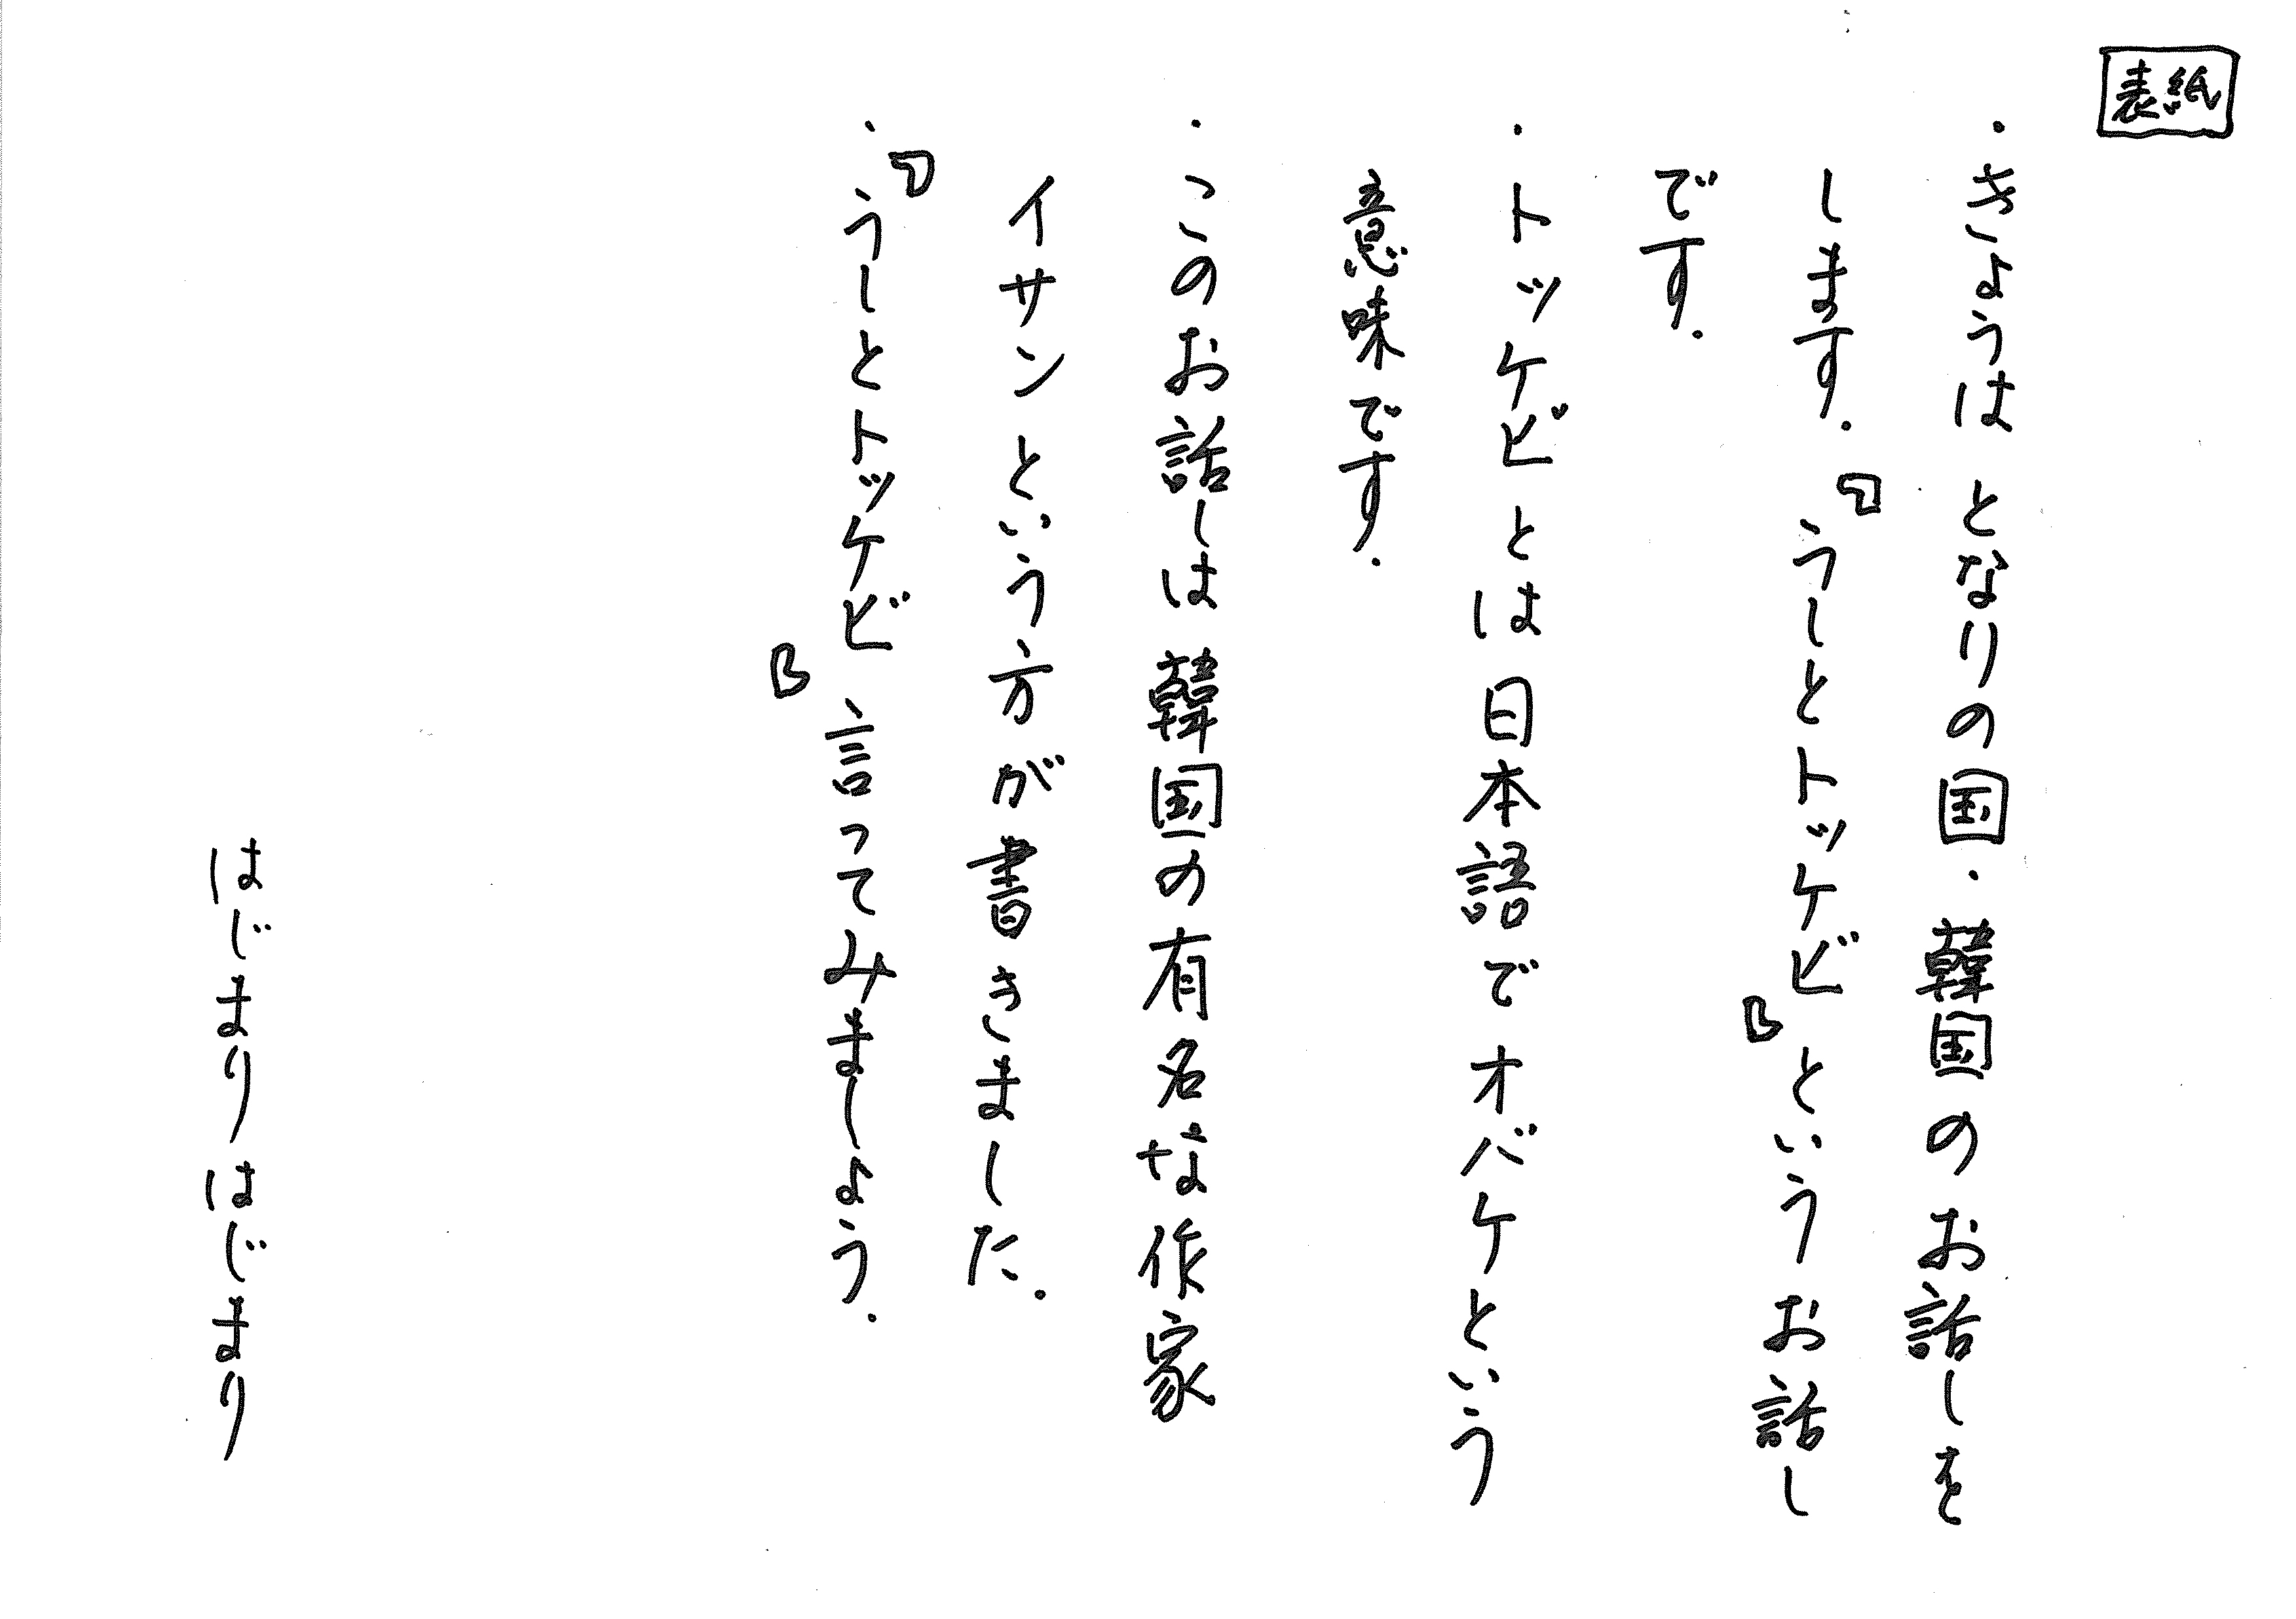 表紙
・きょうは となりの国・韓国のお話しを
します。『うーとトッケビ』というお話し
です。
・トッケビとは日本語でオバケという
意味です。
・このお話しは韓国の有名な作家
イサンという方が書きました。
・『うーとトッケビ』言ってみましょう。
はじまりはじまり